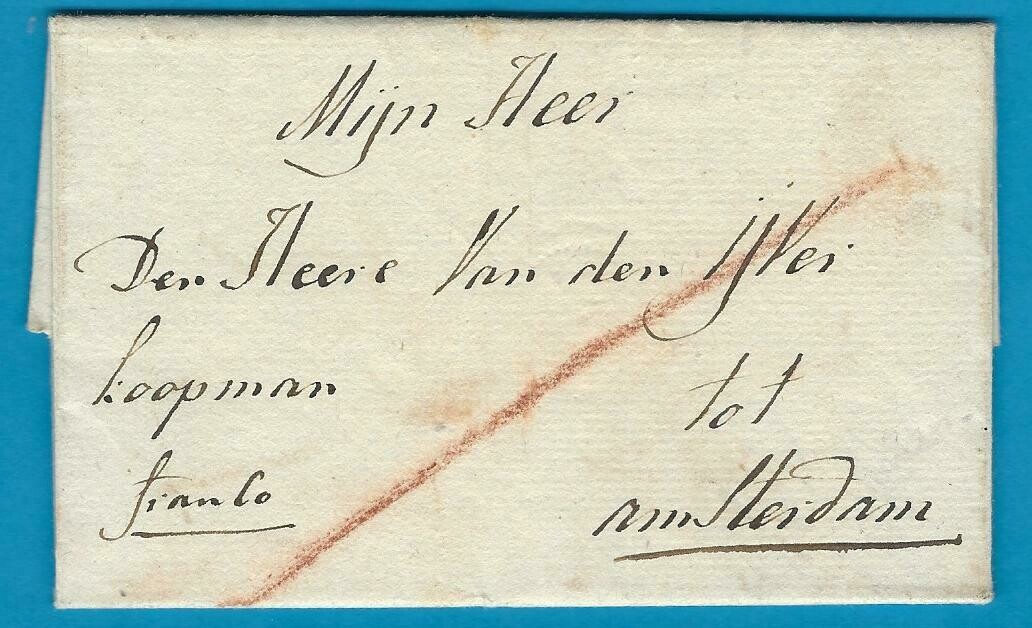 Mijn Heer
Den Heere Van den ijver
koopman
tot
franco
amsterdam